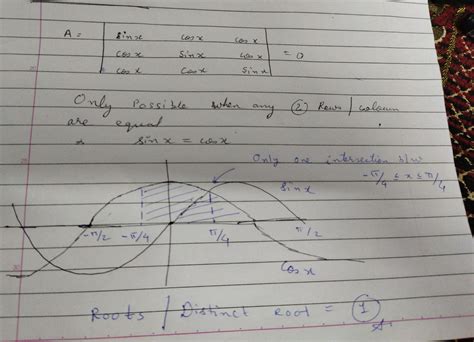 A = | sinx cosx cosx |
| cosx sinx cosx | = 0
| cosx cosx sinx |
Only Possible when any ② Rows / column
are equal.
sinx = cosx
Only one intersection b/w
-π/4 ≤ x ≤ π/4
sinx
-π/2 -π/4 π/4 π/2
cosx
Roots / Distinct Root = ①